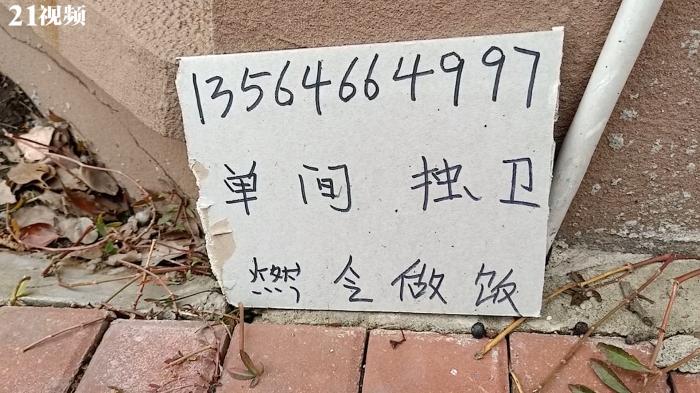 21视频
13564664997
单间 独卫
燃 令做饭